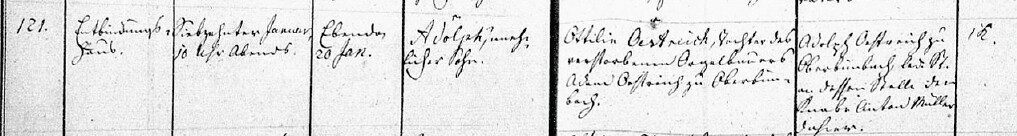 121.
Entbindungs-
Haus.
Siebzehnter Januar,
10 Uhr Abends.
Ebenda
20 Jan.
Adolph, uneh-
licher Sohn.
Ottilia Oestreich, Tochter des
verstorbenen Orgelbauers
Adam Oestreich zu Oberbim-
bach.
Adolph Oestreich zu
Oberbimbach led. St.
an dessen Stelle der
Knabe Anton Müller
dahier.